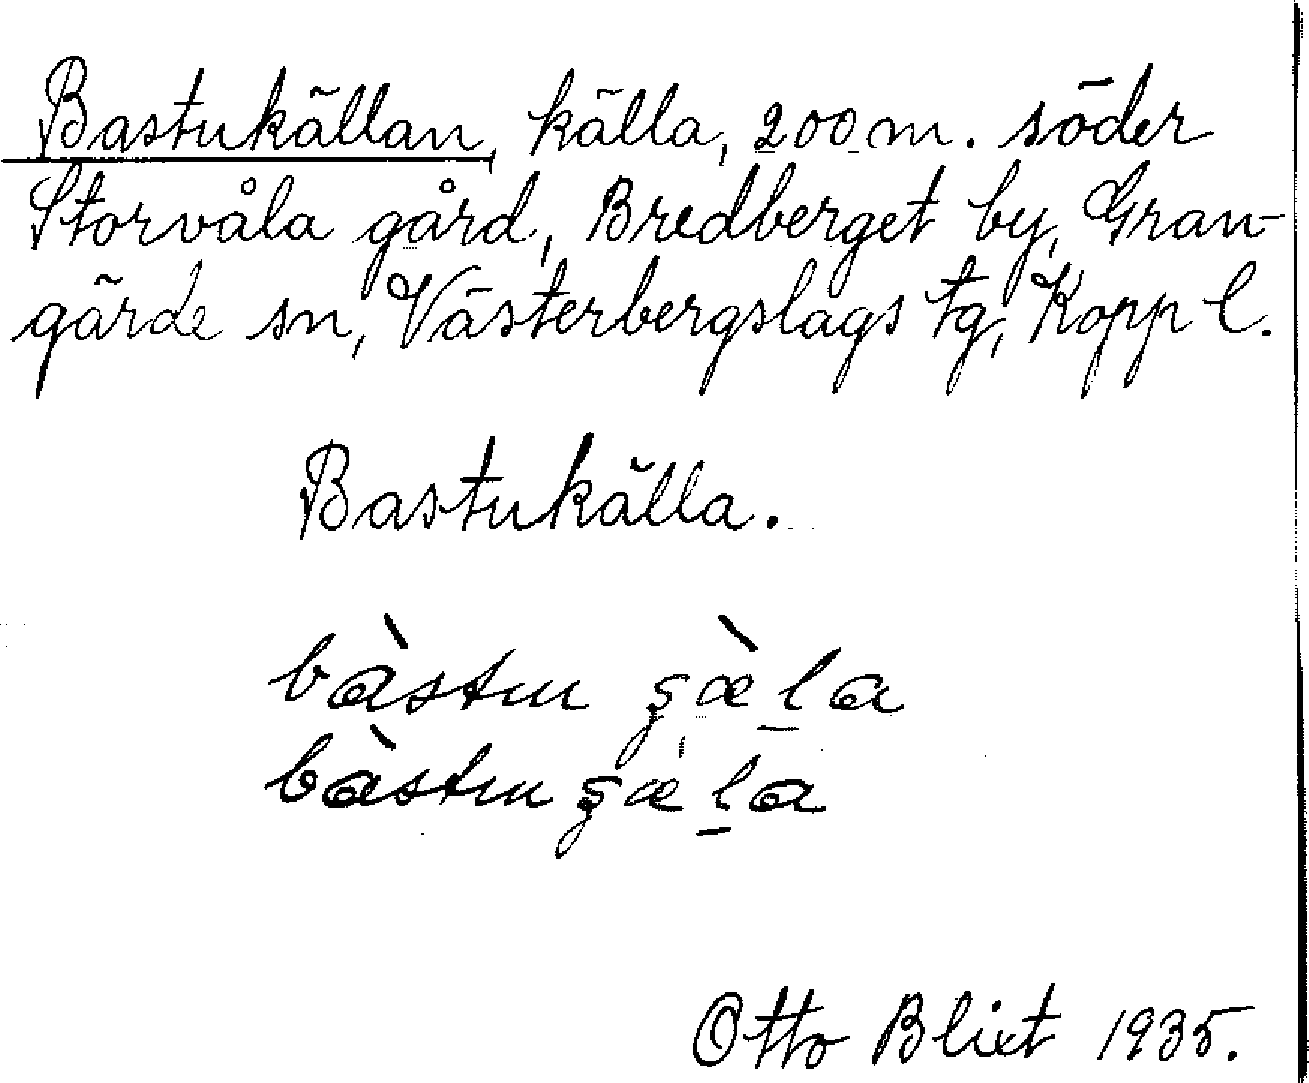 Bastukällan, källa, 200 m. söder
Storvåla gård, Bredberget by, Gran-
gärde sn, Västerbergslags tg, Kopp l.
Bastukälla.
bàstu ʂæ̀l̲a
bàstuʂæl̲a
Otto Blixt 1935.